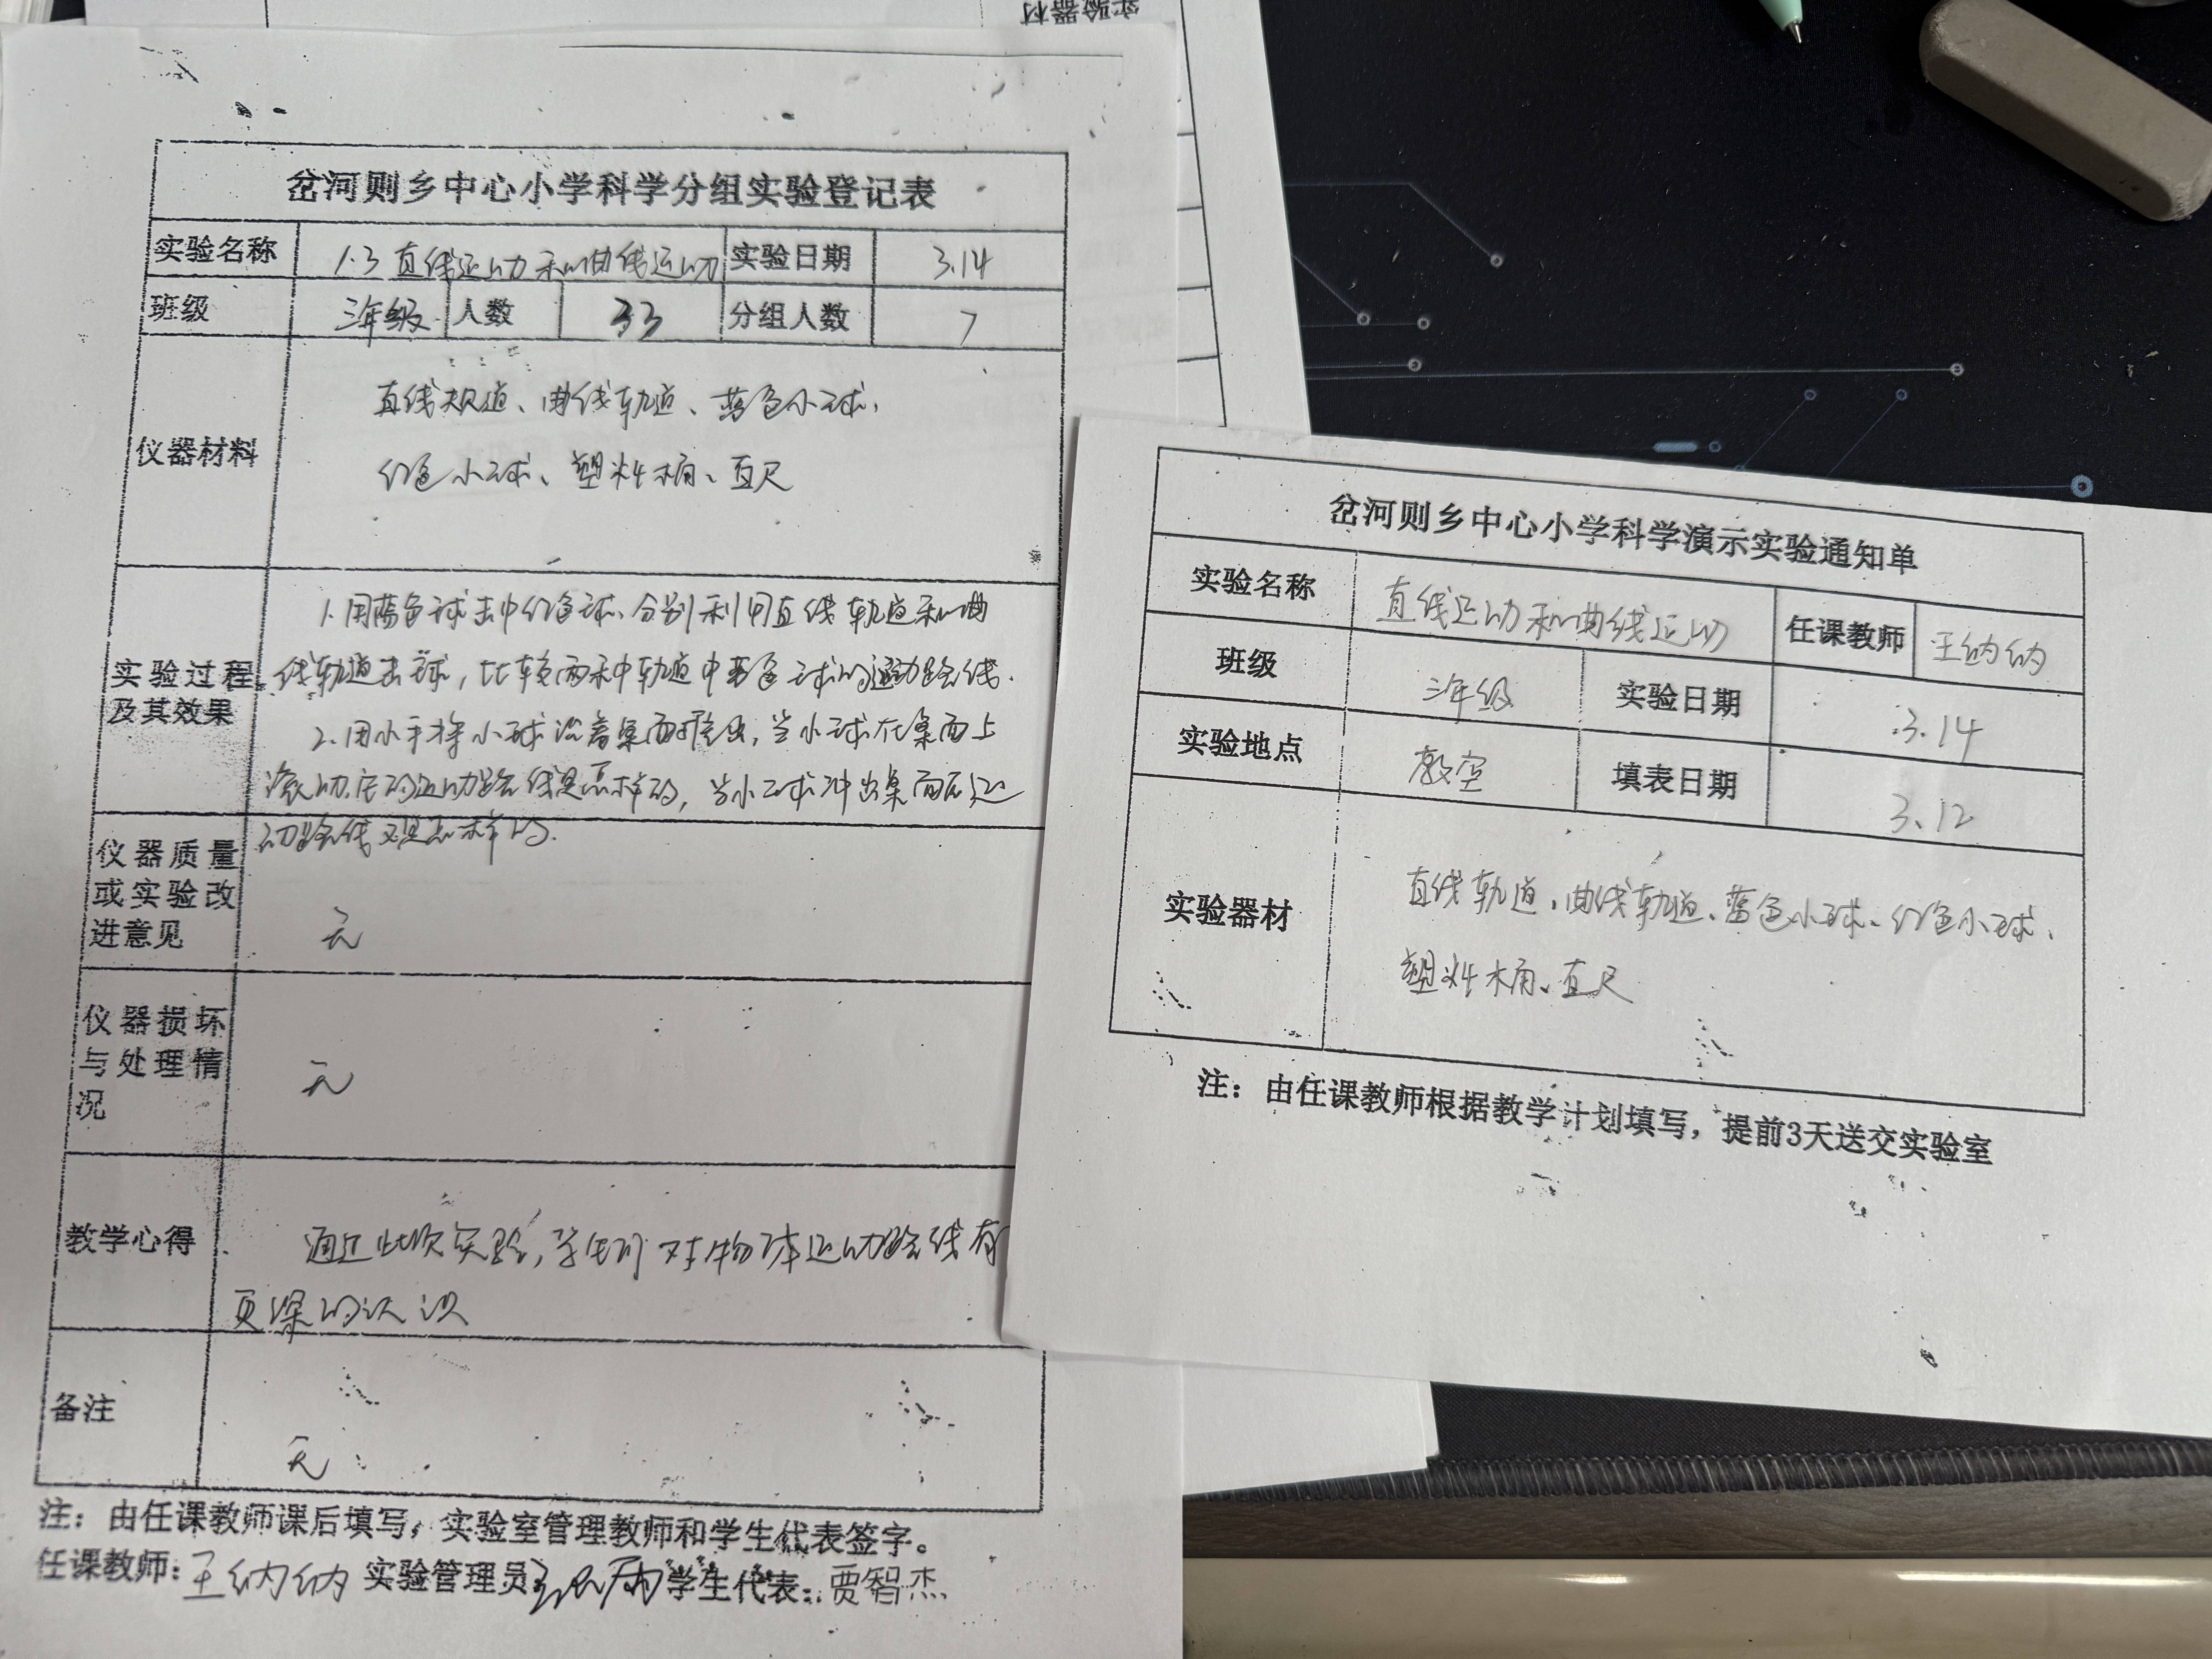 实验器材
岔河则乡中心小学科学分组实验登记表
实验名称 1.3 直线运动和曲线运动 实验日期 3.14
班级 三年级 人数 33 分组人数 7
仪器材料
直线轨道、曲线轨道、蓝色小球、
红色小球、塑料桶、直尺
实验过程及其效果
1.用蓝色球击中红色球、分别利用直线轨道和曲
线轨道击球，比较两种轨道中蓝色球的运动路线.
2.用小手将小球沿着桌面推出，当小球在桌面上
滚动，它的运动路线是怎样的，当小球冲出桌面后运
动路线又是怎样的.
仪器质量
或实验改
进意见
无
仪器损坏
与处理情
况
无
教学心得
通过此次实验，学生们对物体运动路线有
更深的认识
备注
无
注：由任课教师课后填写，实验室管理教师和学生代表签字。
任课教师：王纳纳 实验管理员 学生代表：贾智杰
岔河则乡中心小学科学演示实验通知单
实验名称 直线运动和曲线运动 任课教师 王纳纳
班级 三年级 实验日期 3.14
实验地点 教室 填表日期 3.12
实验器材
直线轨道、曲线轨道、蓝色小球、红色小球、
塑料桶、直尺
注：由任课教师根据教学计划填写，提前3天送交实验室